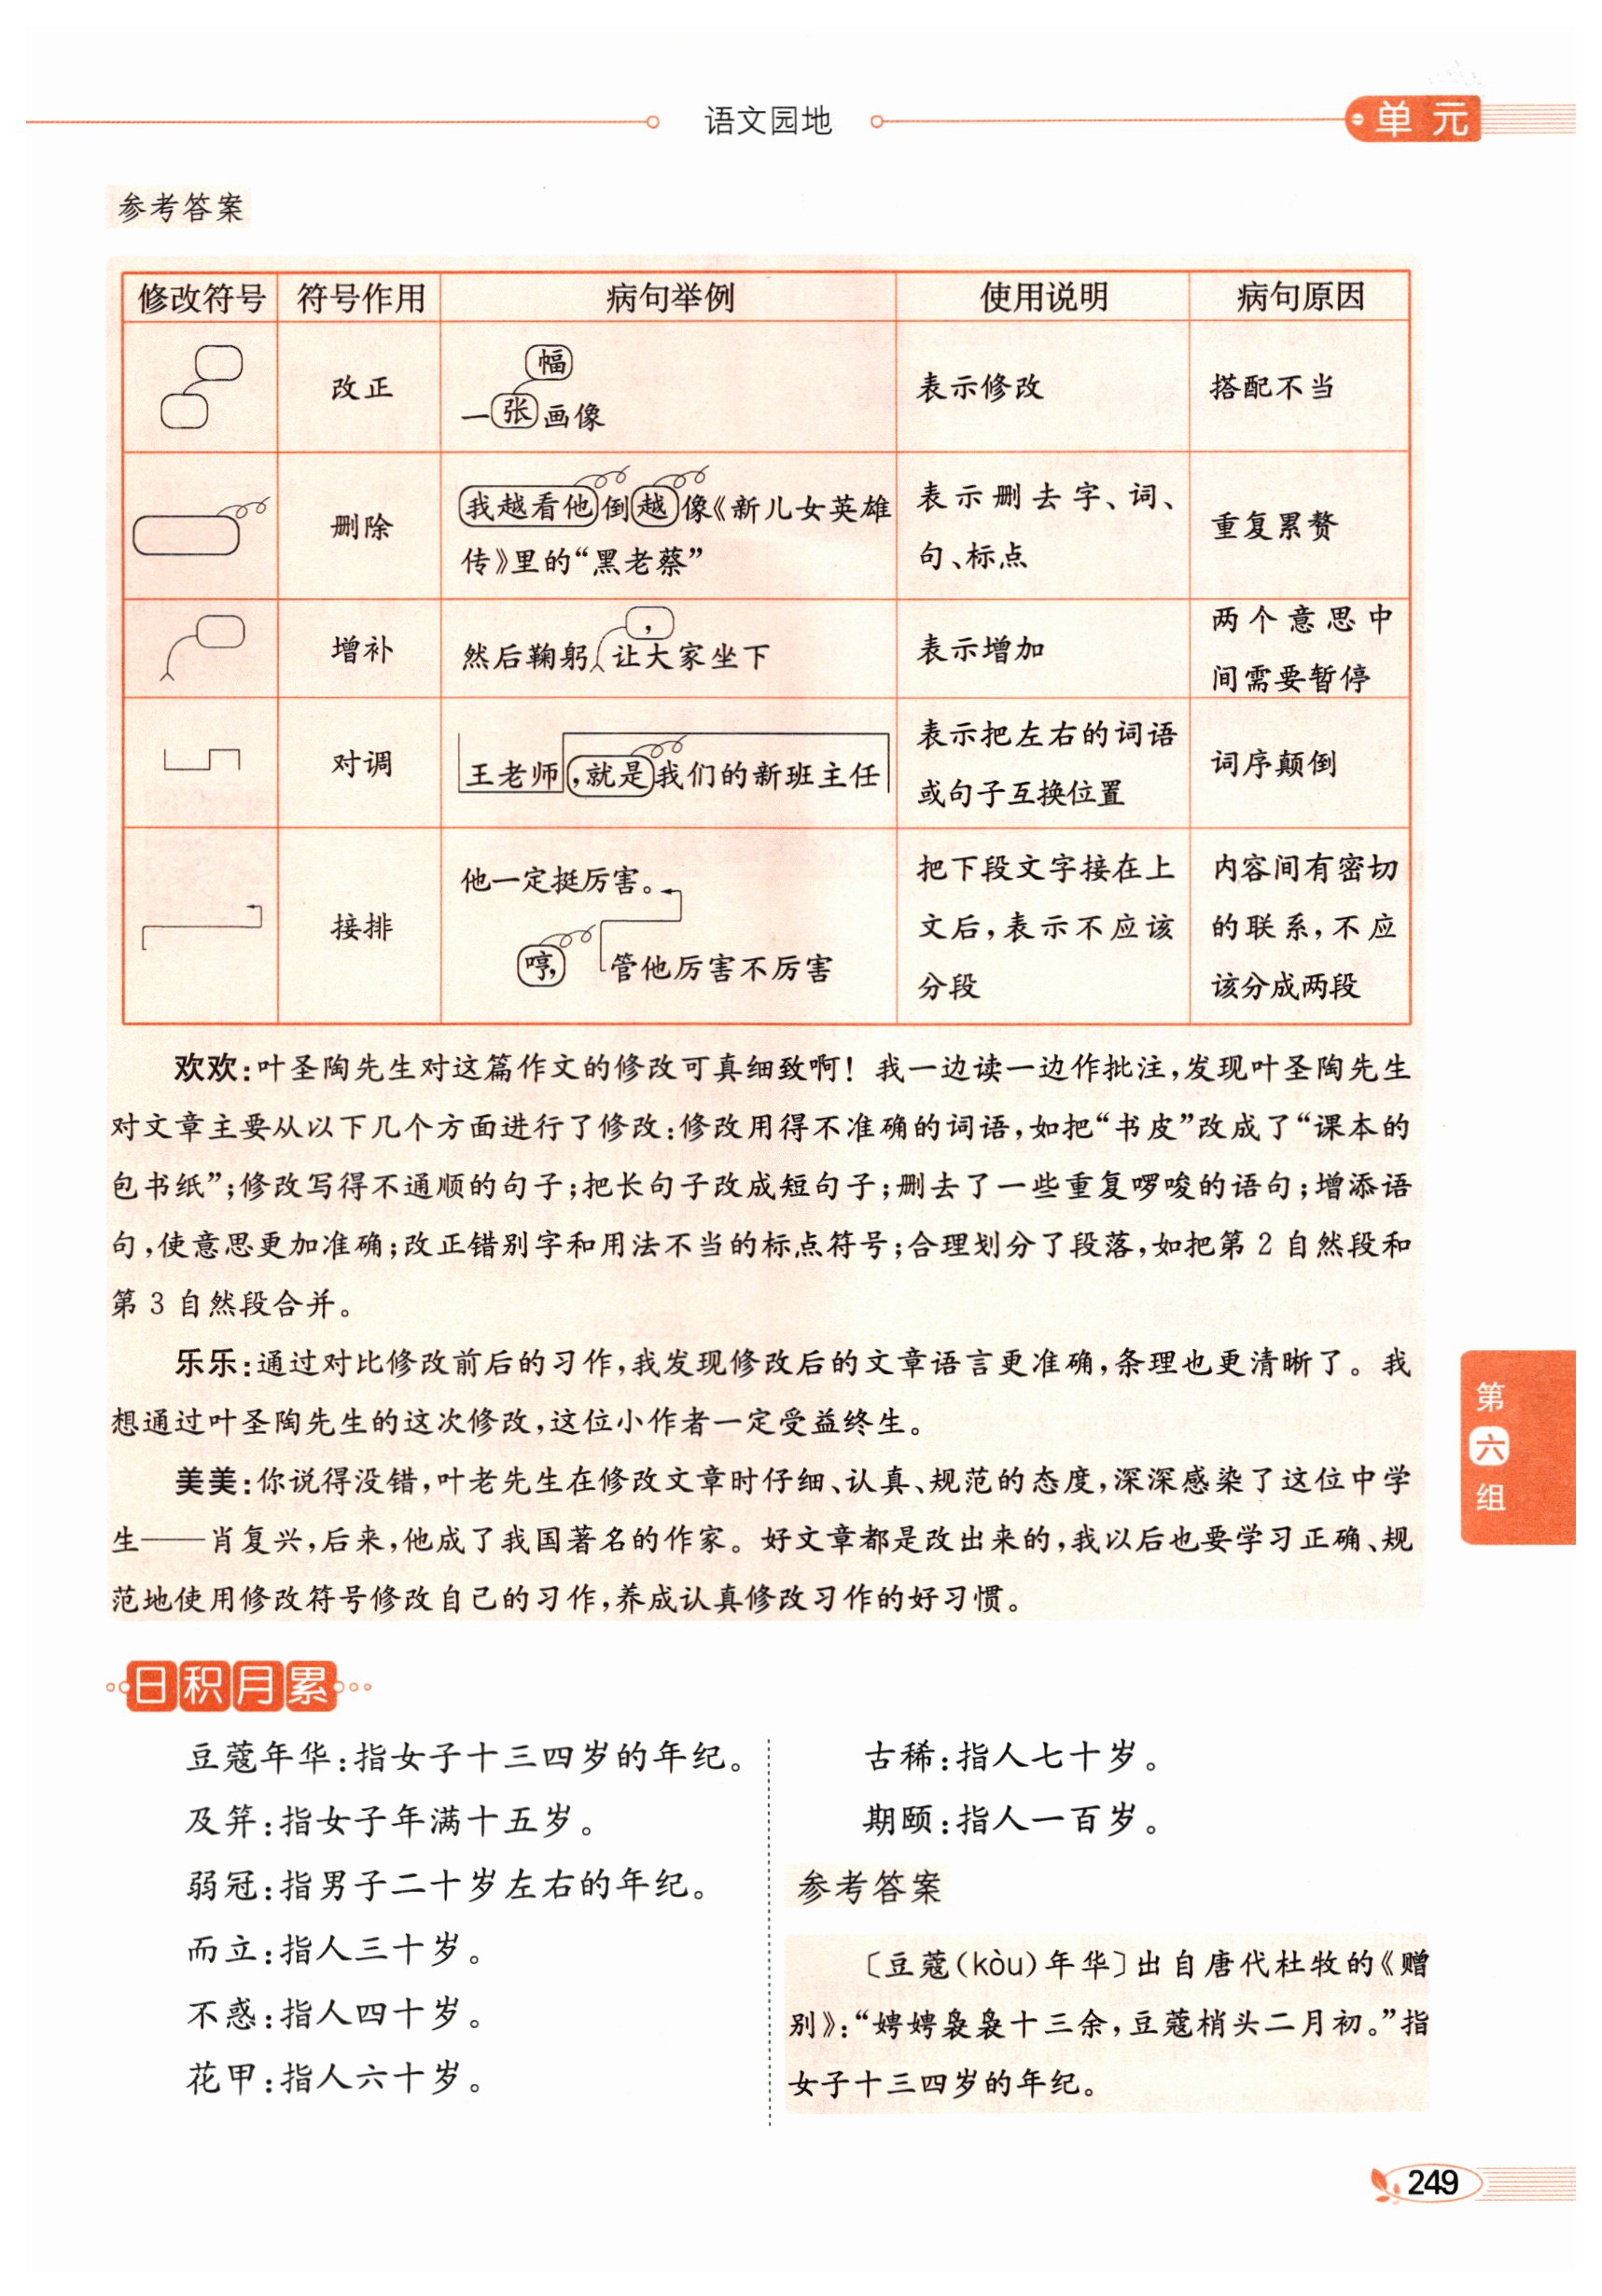 语文园地
单元
参考答案
修改符号 符号作用 病句举例 使用说明 病句原因
改正
幅
一张画像
表示修改
搭配不当
删除
我越看他倒越像《新儿女英雄
传》里的“黑老蔡”
表示删去字、词、
句、标点
重复累赘
增补
，
然后鞠躬 让大家坐下
表示增加
两个意思中
间需要暂停
对调
王老师，就是我们的新班主任
表示把左右的词语
或句子互换位置
词序颠倒
接排
他一定挺厉害。
哼，管他厉害不厉害
把下段文字接在上
文后，表示不应该
分段
内容间有密切
的联系，不应
该分成两段
欢欢：叶圣陶先生对这篇作文的修改可真细致啊！我一边读一边作批注，发现叶圣陶先生
对文章主要从以下几个方面进行了修改：修改用得不准确的词语，如把“书皮”改成了“课本的
包书纸”；修改写得不通顺的句子；把长句子改成短句子；删去了一些重复啰唆的语句；增添语
句，使意思更加准确；改正错别字和用法不当的标点符号；合理划分了段落，如把第 2 自然段和
第 3 自然段合并。
乐乐：通过对比修改前后的习作，我发现修改后的文章语言更准确，条理也更清晰了。我
想通过叶圣陶先生的这次修改，这位小作者一定受益终生。
美美：你说得没错，叶老先生在修改文章时仔细、认真、规范的态度，深深感染了这位中学
生——肖复兴，后来，他成了我国著名的作家。好文章都是改出来的，我以后也要学习正确、规
范地使用修改符号修改自己的习作，养成认真修改习作的好习惯。
第六组
日积月累
豆蔻年华：指女子十三四岁的年纪。
及笄：指女子年满十五岁。
弱冠：指男子二十岁左右的年纪。
而立：指人三十岁。
不惑：指人四十岁。
花甲：指人六十岁。
古稀：指人七十岁。
期颐：指人一百岁。
参考答案
〔豆蔻（kòu）年华〕出自唐代杜牧的《赠
别》：“娉娉袅袅十三余，豆蔻梢头二月初。”指
女子十三四岁的年纪。
249